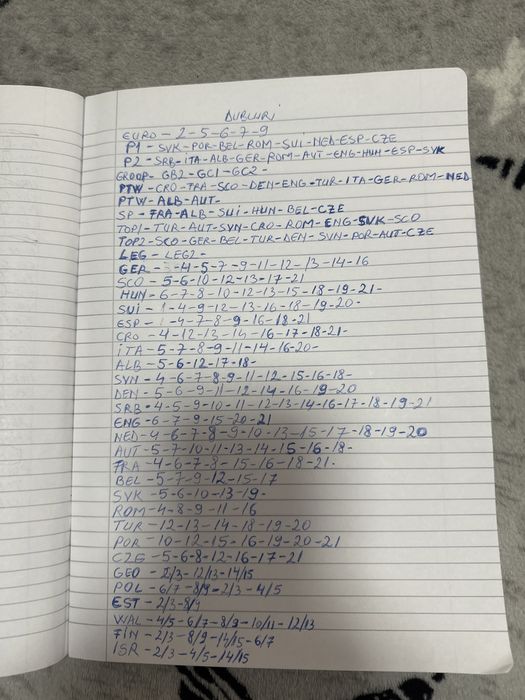 DUBLURI
EURO - 2-5-6-7-9
P1 - SVK-POR-BEL-ROM-SUI-NED-ESP-CZE
P2 - SRB-ITA-ALB-GER-ROM-AUT-ENG-HUN-ESP-SVK
GROOP- GB2-GC1-GC2-
PTW-CRO-FRA-SCO-DEN-ENG-TUR-ITA-GER-ROM-NED
PTW-ALB-AUT-
SP-FRA-ALB-SUI-HUN-BEL-CZE
TOP1-TUR-AUT-SVN-CRO-ROM-ENG-SVK-SCO
TOP2-SCO-GER-BEL-TUR-DEN-SVN-POR-AUT-CZE
LEG - LEG2-
GER - -4-5-7-9-11-12-13-14-16
SCO - 5-6-10-12-13-17-21
HUN-6-7-8-10-12-13-15-18-19-21-
SUI - 1-4-9-12-13-16-18-19-20-
ESP - 1-4-7-8-9-16-18-21
CRO - 4-12-13-14-16-17-18-21-
ITA-5-7-8-9-11-14-16-20-
ALB-5-6-12-17-18-
SVN-4-6-7-8-9-11-12-15-16-18-
DEN-5-6-9-11-12-14-16-19-20
SRB-4-5-9-10-11-12-13-14-16-17-18-19-21
ENG-6-7-9-15-20-21
NED-4-6-7-8-9-10-13-15-17-18-19-20
AUT-5-7-10-11-13-14-15-16-18-
FRA-4-6-7-8-15-16-18-21-
BEL-5-7-9-12-15-17
SVK-5-6-10-13-19-
ROM-4-8-9-11-16
TUR-12-13-14-18-19-20
POR-10-12-15-16-19-20-21
CZE-5-6-8-12-16-17-21
GEO - 2/3-12/13-14/15
POL-6/7-8/9-2/3-4/5
EST-2/3-8/9
WAL-4/5-6/7-8/9-10/11-12/13
FIN-2/3-8/9-14/15-6/7
ISR-2/3-4/5-14/15